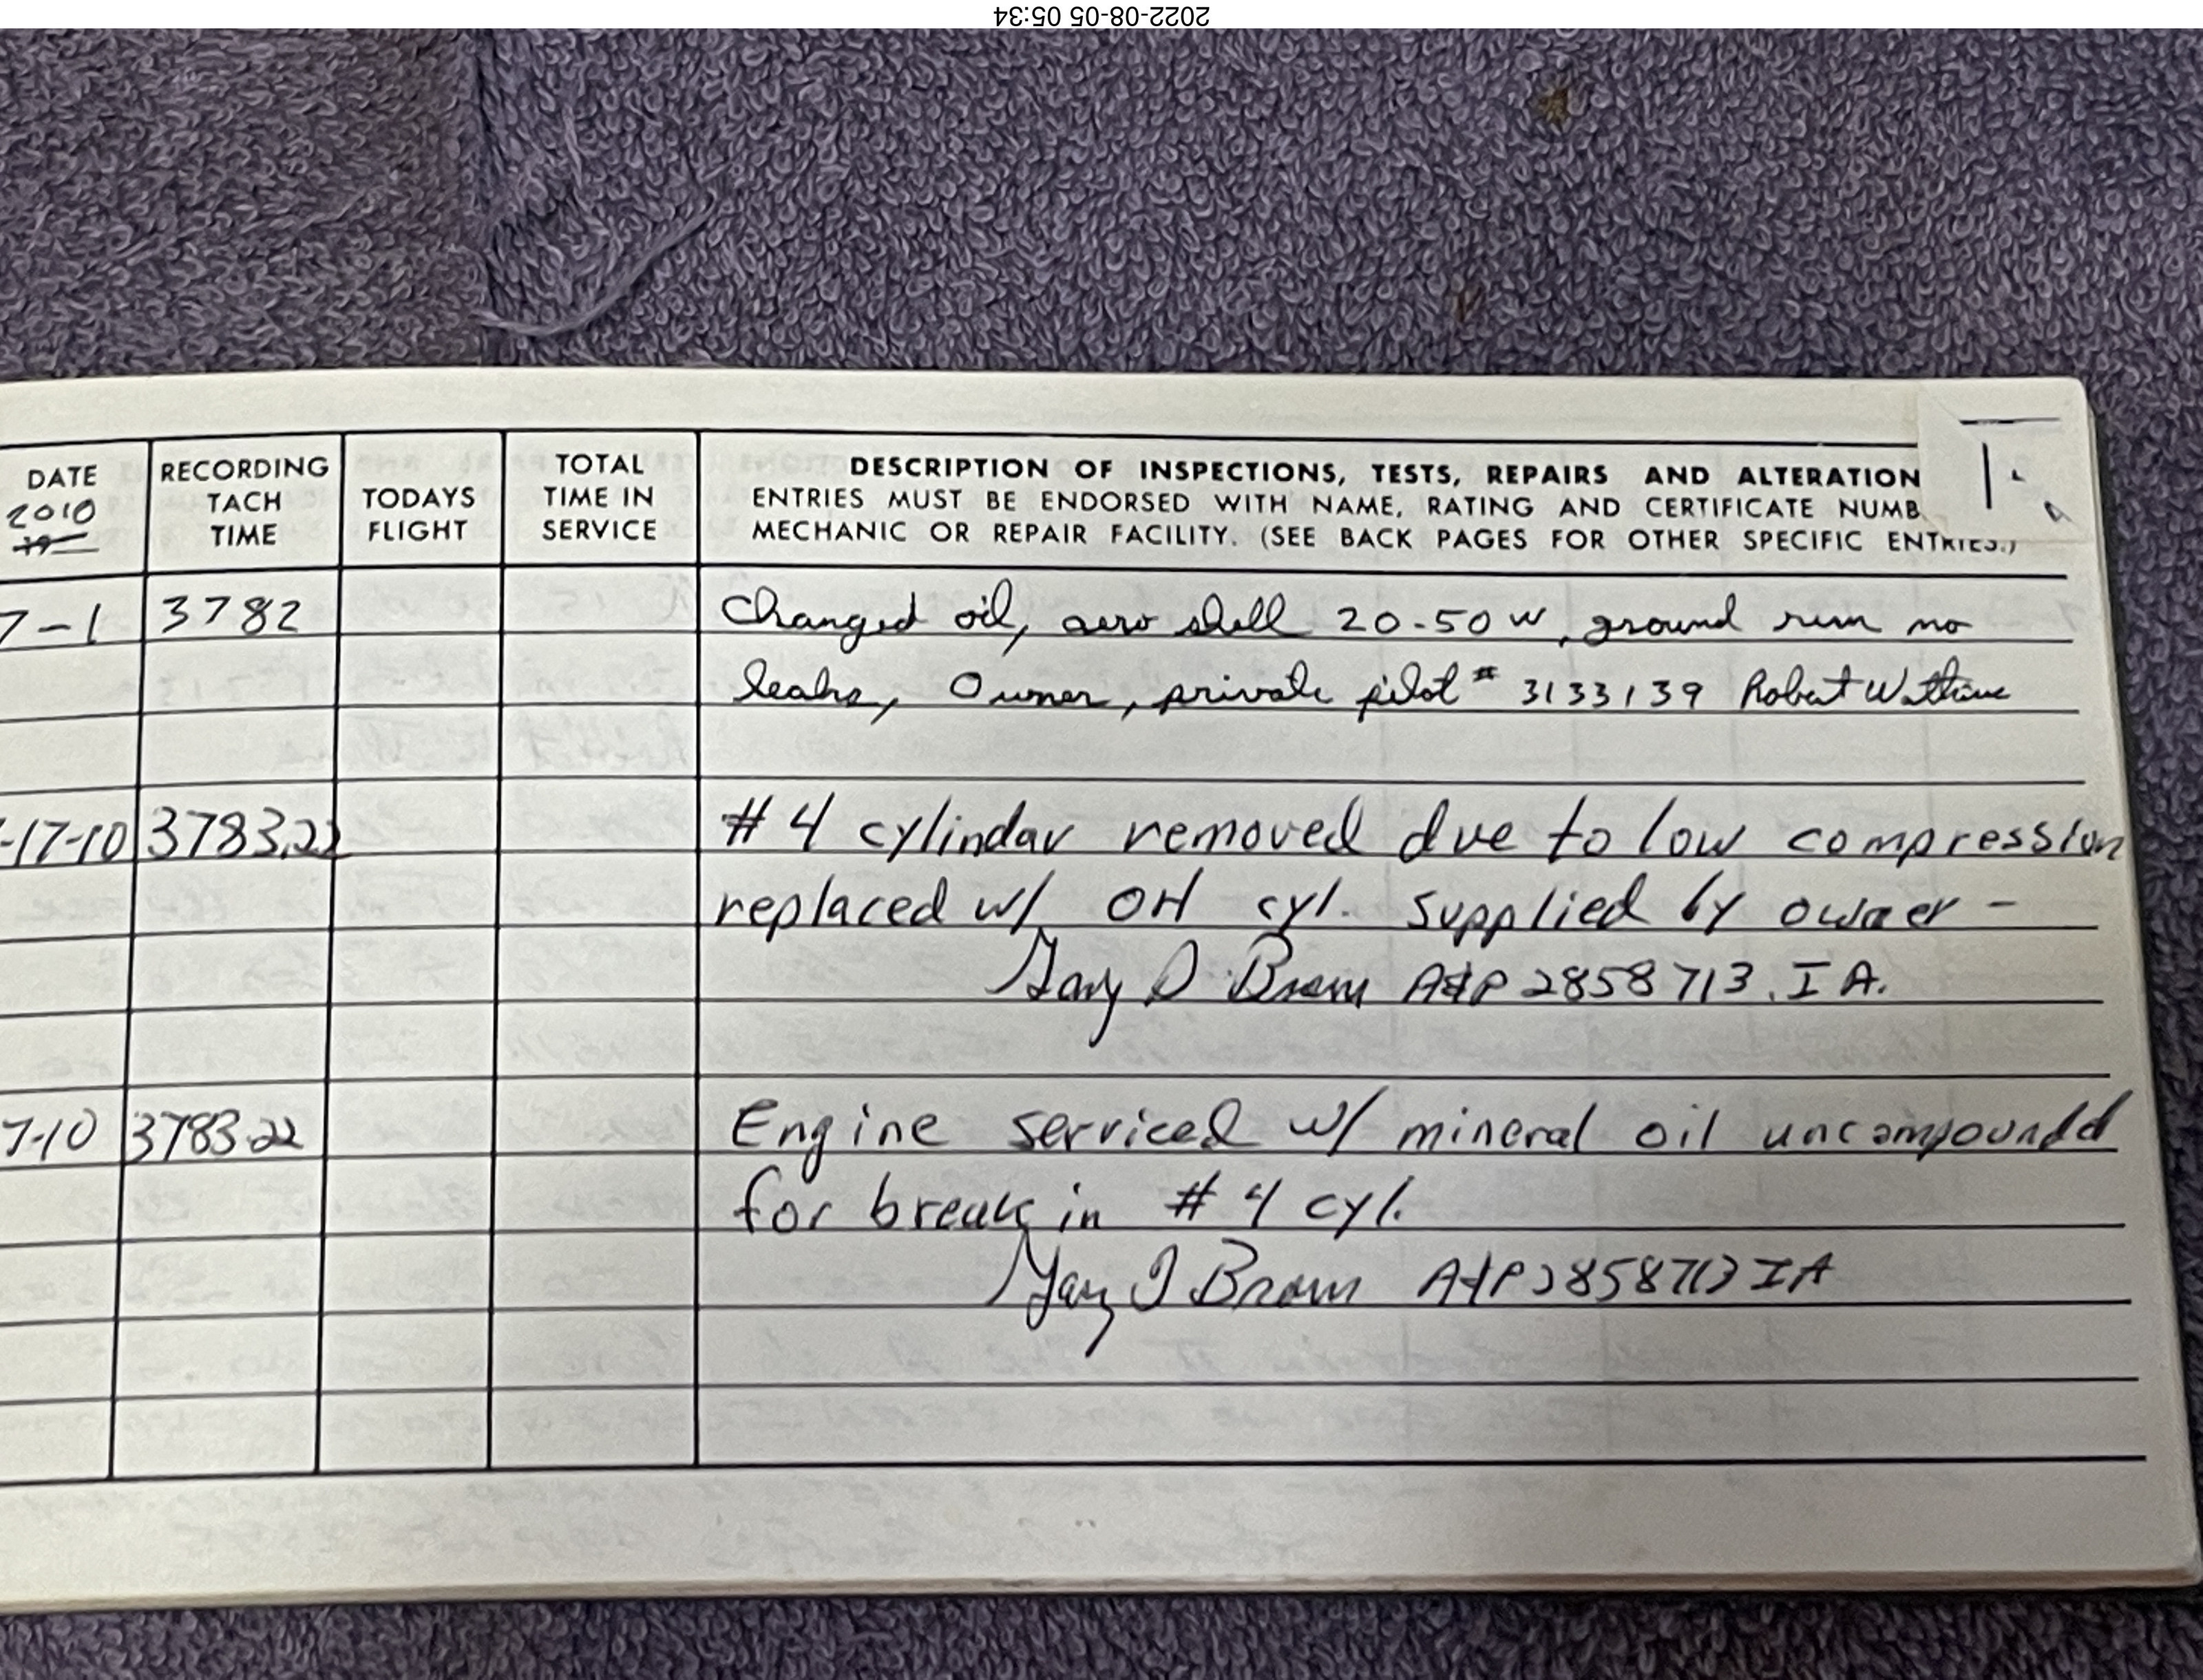 2022-08-05 05:34
DATE
2010
19
RECORDING
TACH
TIME
TODAYS
FLIGHT
TOTAL
TIME IN
SERVICE
DESCRIPTION OF INSPECTIONS, TESTS, REPAIRS AND ALTERATION
ENTRIES MUST BE ENDORSED WITH NAME, RATING AND CERTIFICATE NUMB
MECHANIC OR REPAIR FACILITY. (SEE BACK PAGES FOR OTHER SPECIFIC ENTRIES.)
7-1 3782 Changed oil, aero shell 20-50 W, ground run no
leaks, Owner, private pilot # 3133139 Robert Watkins
-17-10 3783.22 #4 cylindar removed due to low compression
replaced w/ OH cyl. supplied by owner -
Gary D Brown A&P 2858713 IA.
7-10 3783.22 Engine serviced w/ mineral oil uncompoundd
for break in #4 cyl.
Gary D Brown A&P 2858713 IA